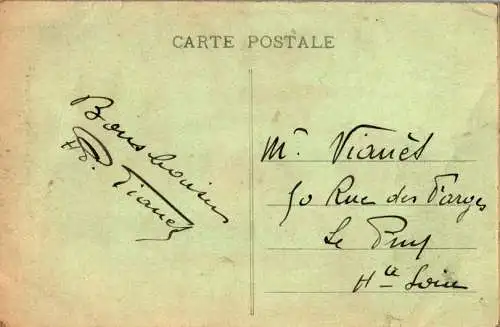 CARTE POSTALE
Bons baisers
Vianès
Mr. Vianès
50 Rue des Farges
Le Puy
Hte Loire